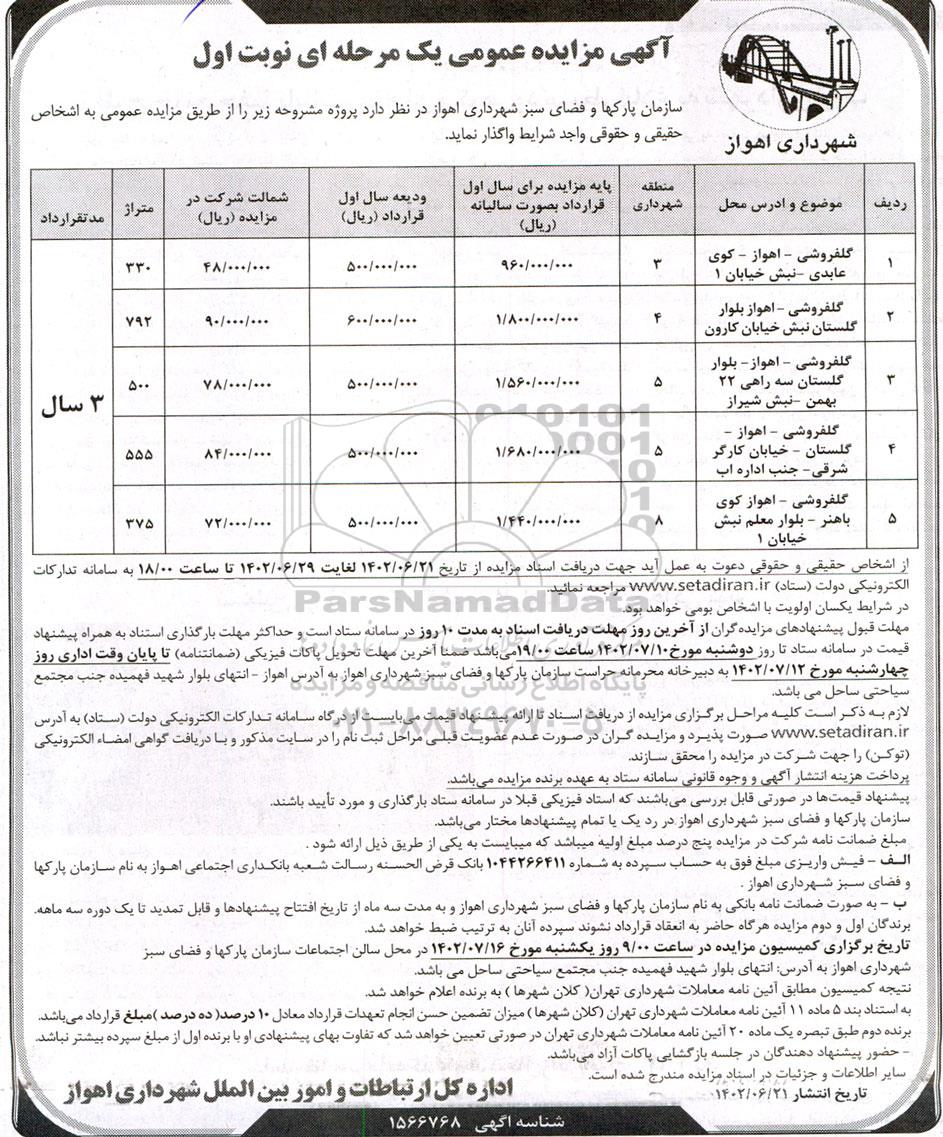 آگهی مزایده عمومی یک مرحله ای نوبت اول
شهرداری اهواز
سازمان پارکها و فضای سبز شهرداری اهواز در نظر دارد پروژه مشروحه زیر را از طریق مزایده عمومی به اشخاص
حقیقی و حقوقی واجد شرایط واگذار نماید.
ردیف | موضوع و ادرس محل | منطقه شهرداری | پایه مزایده برای سال اول قرارداد بصورت سالیانه (ریال) | ودیعه سال اول قرارداد (ریال) | شمالت شرکت در مزایده (ریال) | متراژ | مدتقرارداد
۱ | گلفروشی - اهواز - کوی عابدی -نبش خیابان ۱ | ۳ | ۹۶۰/۰۰۰/۰۰۰ | ۵۰۰/۰۰۰/۰۰۰ | ۴۸/۰۰۰/۰۰۰ | ۳۳۰ | ۳ سال
۲ | گلفروشی -اهواز بلوار گلستان نبش خیابان کارون | ۴ | ۱/۸۰۰/۰۰۰/۰۰۰ | ۶۰۰/۰۰۰/۰۰۰ | ۹۰/۰۰۰/۰۰۰ | ۷۹۲
۳ | گلفروشی - اهواز- بلوار گلستان سه راهی ۲۲ بهمن -نبش شیراز | ۵ | ۱/۵۶۰/۰۰۰/۰۰۰ | ۵۰۰/۰۰۰/۰۰۰ | ۷۸/۰۰۰/۰۰۰ | ۵۰۰
۴ | گلفروشی - اهواز - گلستان - خیابان کارگر شرقی- جنب اداره اب | ۵ | ۱/۶۸۰/۰۰۰/۰۰۰ | ۵۰۰/۰۰۰/۰۰۰ | ۸۴/۰۰۰/۰۰۰ | ۵۵۵
۵ | گلفروشی - اهواز کوی باهنر - بلوار معلم نبش خیابان ۱ | ۸ | ۱/۴۴۰/۰۰۰/۰۰۰ | ۵۰۰/۰۰۰/۰۰۰ | ۷۲/۰۰۰/۰۰۰ | ۳۷۵
از اشخاص حقیقی و حقوقی دعوت به عمل آید جهت دریافت اسناد مزایده از تاریخ ۱۴۰۲/۰۶/۲۱ لغایت ۱۴۰۲/۰۶/۲۹ تا ساعت ۱۸/۰۰ به سامانه تدارکات
الکترونیکی دولت (ستاد) www.setadiran.ir مراجعه نمائید.
در شرایط یکسان اولویت با اشخاص بومی خواهد بود.
ParsNamadData
مهلت قبول پیشنهادهای مزایده‌گران از آخرین روز مهلت دریافت اسناد به مدت ۱۰ روز در سامانه ستاد است و حداکثر مهلت بارگذاری استناد به همراه پیشنهاد
قیمت در سامانه ستاد تا روز دوشنبه مورخ ۱۴۰۲/۰۷/۱۰ ساعت ۱۹/۰۰ می‌باشد ضمنا آخرین مهلت تحویل پاکات فیزیکی (ضمانتنامه) تا پایان وقت اداری روز
چهارشنبه مورخ ۱۴۰۲/۰۷/۱۲ به دبیرخانه محرمانه حراست سازمان پارکها و فضای سبز شهرداری اهواز به آدرس اهواز - انتهای بلوار شهید فهمیده جنب مجتمع
سیاحتی ساحل می باشد.
پایگاه اطلاع رسانی مناقصه و مزایده
لازم به ذکر است کلیه مراحل برگزاری مزایده از دریافت اسناد تا ارائه پیشنهاد قیمت می‌بایست از درگاه سامانه تدارکات الکترونیکی دولت (ستاد) به آدرس
www.setadiran.ir صورت پذیرد و مزایده گران در صورت عدم عضویت قبلی مراحل ثبت نام را در سایت مذکور و با دریافت گواهی امضاء الکترونیکی
(توکن) را جهت شرکت در مزایده را محقق سازند.
پرداخت هزینه انتشار آگهی و وجوه قانونی سامانه ستاد به عهده برنده مزایده می‌باشد.
پیشنهاد قیمت‌ها در صورتی قابل بررسی می‌باشند که استاد فیزیکی قبلا در سامانه ستاد بارگذاری و مورد تأیید باشند.
سازمان پارکها و فضای سبز شهرداری اهواز در رد یک یا تمام پیشنهادها مختار می‌باشد.
مبلغ ضمانت نامه شرکت در مزایده پنج درصد مبلغ اولیه میباشد که میبایست به یکی از طریق ذیل ارائه شود .
الف - فیش واریزی مبلغ فوق به حساب سپرده به شماره ۱۰۴۴۲۶۶۴۱۱ بانک قرض الحسنه رسالت شعبه بانکداری اجتماعی اهواز به نام سازمان پارکها
و فضای سبز شهرداری اهواز .
ب - به صورت ضمانت نامه بانکی به نام سازمان پارکها و فضای سبز شهرداری اهواز و به مدت سه ماه از تاریخ افتتاح پیشنهادها و قابل تمدید تا یک دوره سه ماهه.
برندگان اول و دوم مزایده هرگاه حاضر به انعقاد قرارداد نشوند سپرده آنان به ترتیب ضبط خواهد شد.
تاریخ برگزاری کمیسیون مزایده در ساعت ۹/۰۰ روز یکشنبه مورخ ۱۴۰۲/۰۷/۱۶ در محل سالن اجتماعات سازمان پارکها و فضای سبز
شهرداری اهواز به آدرس: انتهای بلوار شهید فهمیده جنب مجتمع سیاحتی ساحل می باشد.
نتیجه کمیسیون مطابق آئین نامه معاملات شهرداری تهران( کلان شهرها ) به برنده اعلام خواهد شد.
به استناد بند ۵ ماده ۱۱ آئین نامه معاملات شهرداری تهران (کلان شهرها ) میزان تضمین حسن انجام تعهدات قرارداد معادل ۱۰ درصد( ده درصد )مبلغ قرارداد می‌باشد.
برنده دوم طبق تبصره یک ماده ۲۰ آئین نامه معاملات شهرداری تهران در صورتی تعیین خواهد شد که تفاوت بهای پیشنهادی او با برنده اول از مبلغ سپرده بیشتر نباشد.
- حضور پیشنهاد دهندگان در جلسه بازگشایی پاکات آزاد می‌باشد.
سایر اطلاعات و جزئیات در اسناد مزایده مندرج شده است.
تاریخ انتشار ۱۴۰۲/۰۶/۲۱
اداره کل ارتباطات و امور بین الملل شهرداری اهواز
شناسه اگهی ۱۵۶۶۷۶۸